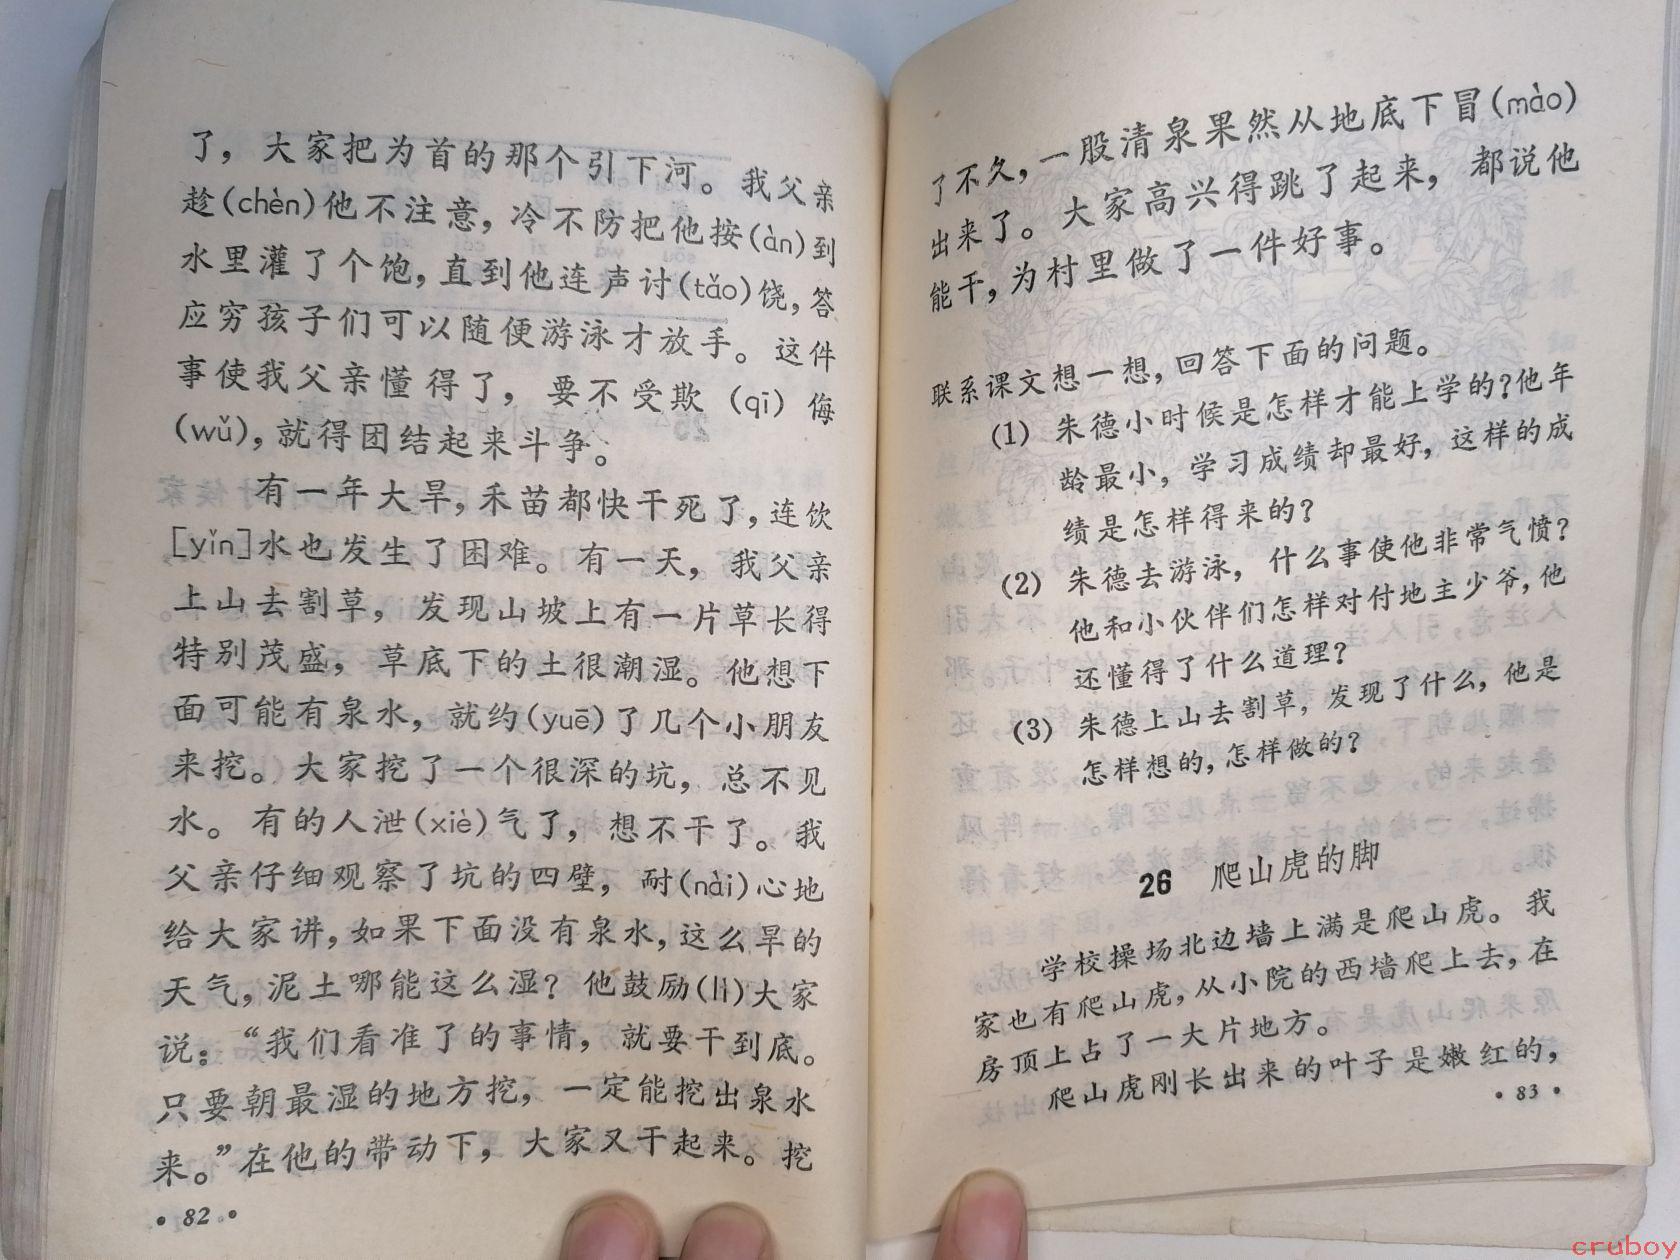 了，大家把为首的那个引下河。我父亲
趁(chèn)他不注意，冷不防把他按(àn)到
水里灌了个饱，直到他连声讨(tǎo)饶，答
应穷孩子们可以随便游泳才放手。这件
事使我父亲懂得了，要不受欺(qī)侮
(wǔ)，就得团结起来斗争。
有一年大旱，禾苗都快干死了，连饮
[yǐn]水也发生了困难。有一天，我父亲
上山去割草，发现山坡上有一片草长得
特别茂盛，草底下的土很潮湿。他想下
面可能有泉水，就约(yuē)了几个小朋友
来挖。大家挖了一个很深的坑，总不见
水。有的人泄(xiè)气了，想不干了。我
父亲仔细观察了坑的四壁，耐(nài)心地
给大家讲，如果下面没有泉水，这么旱的
天气，泥土哪能这么湿？他鼓励(lì)大家
说：“我们看准了的事情，就要干到底。
只要朝最湿的地方挖，一定能挖出泉水
来。”在他的带动下，大家又干起来。挖
·82·
了不久，一股清泉果然从地底下冒(mào)
出来了。大家高兴得跳了起来，都说他
能干，为村里做了一件好事。
联系课文想一想，回答下面的问题。
(1) 朱德小时候是怎样才能上学的？他年
龄最小，学习成绩却最好，这样的成
绩是怎样得来的？
(2) 朱德去游泳，什么事使他非常气愤？
他和小伙伴们怎样对付地主少爷，他
还懂得了什么道理？
(3) 朱德上山去割草，发现了什么，他是
怎样想的，怎样做的？
26 爬山虎的脚
学校操场北边墙上满是爬山虎。我
家也有爬山虎，从小院的西墙爬上去，在
房顶上占了一大片地方。
爬山虎刚长出来的叶子是嫩红的，
·83·
cruboy